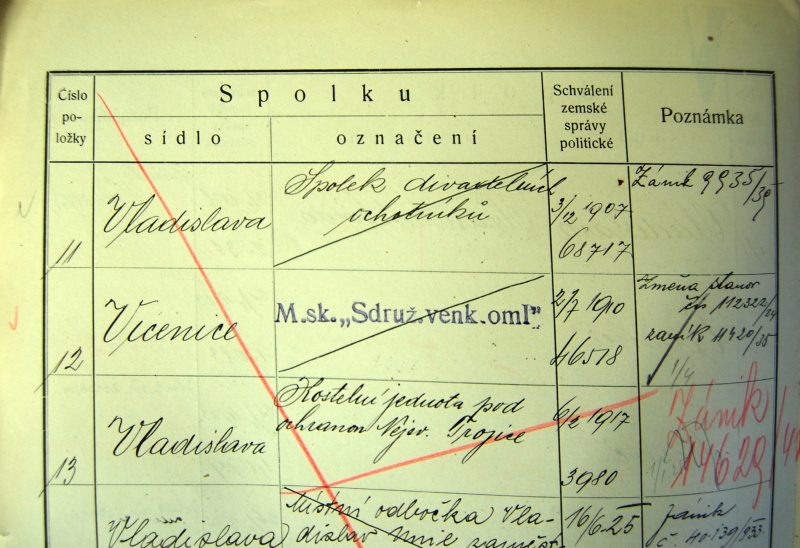 Číslo po- ložky
Spolku
sídlo
označení
Schválení zemské správy politické
Poznámka
11
Vladislava
Spolek divadelních
ochotníků
3/12 1907
68717
Zánik 9935/39
12
Vícenice
M.sk. „Sdruž.venk.oml"
2/7 1910
46518
Změna stanov
čís 112322/24
zánik 11420/35
1/4
13
Vladislava
Kostelní jednota pod
ochranou Nejsv. Trojice
6/2 1917
3980
Zánik
14629
Vladislava
Místní odbočka Vla-
dislav
16/6 25
zánik
č. 40.139/933.